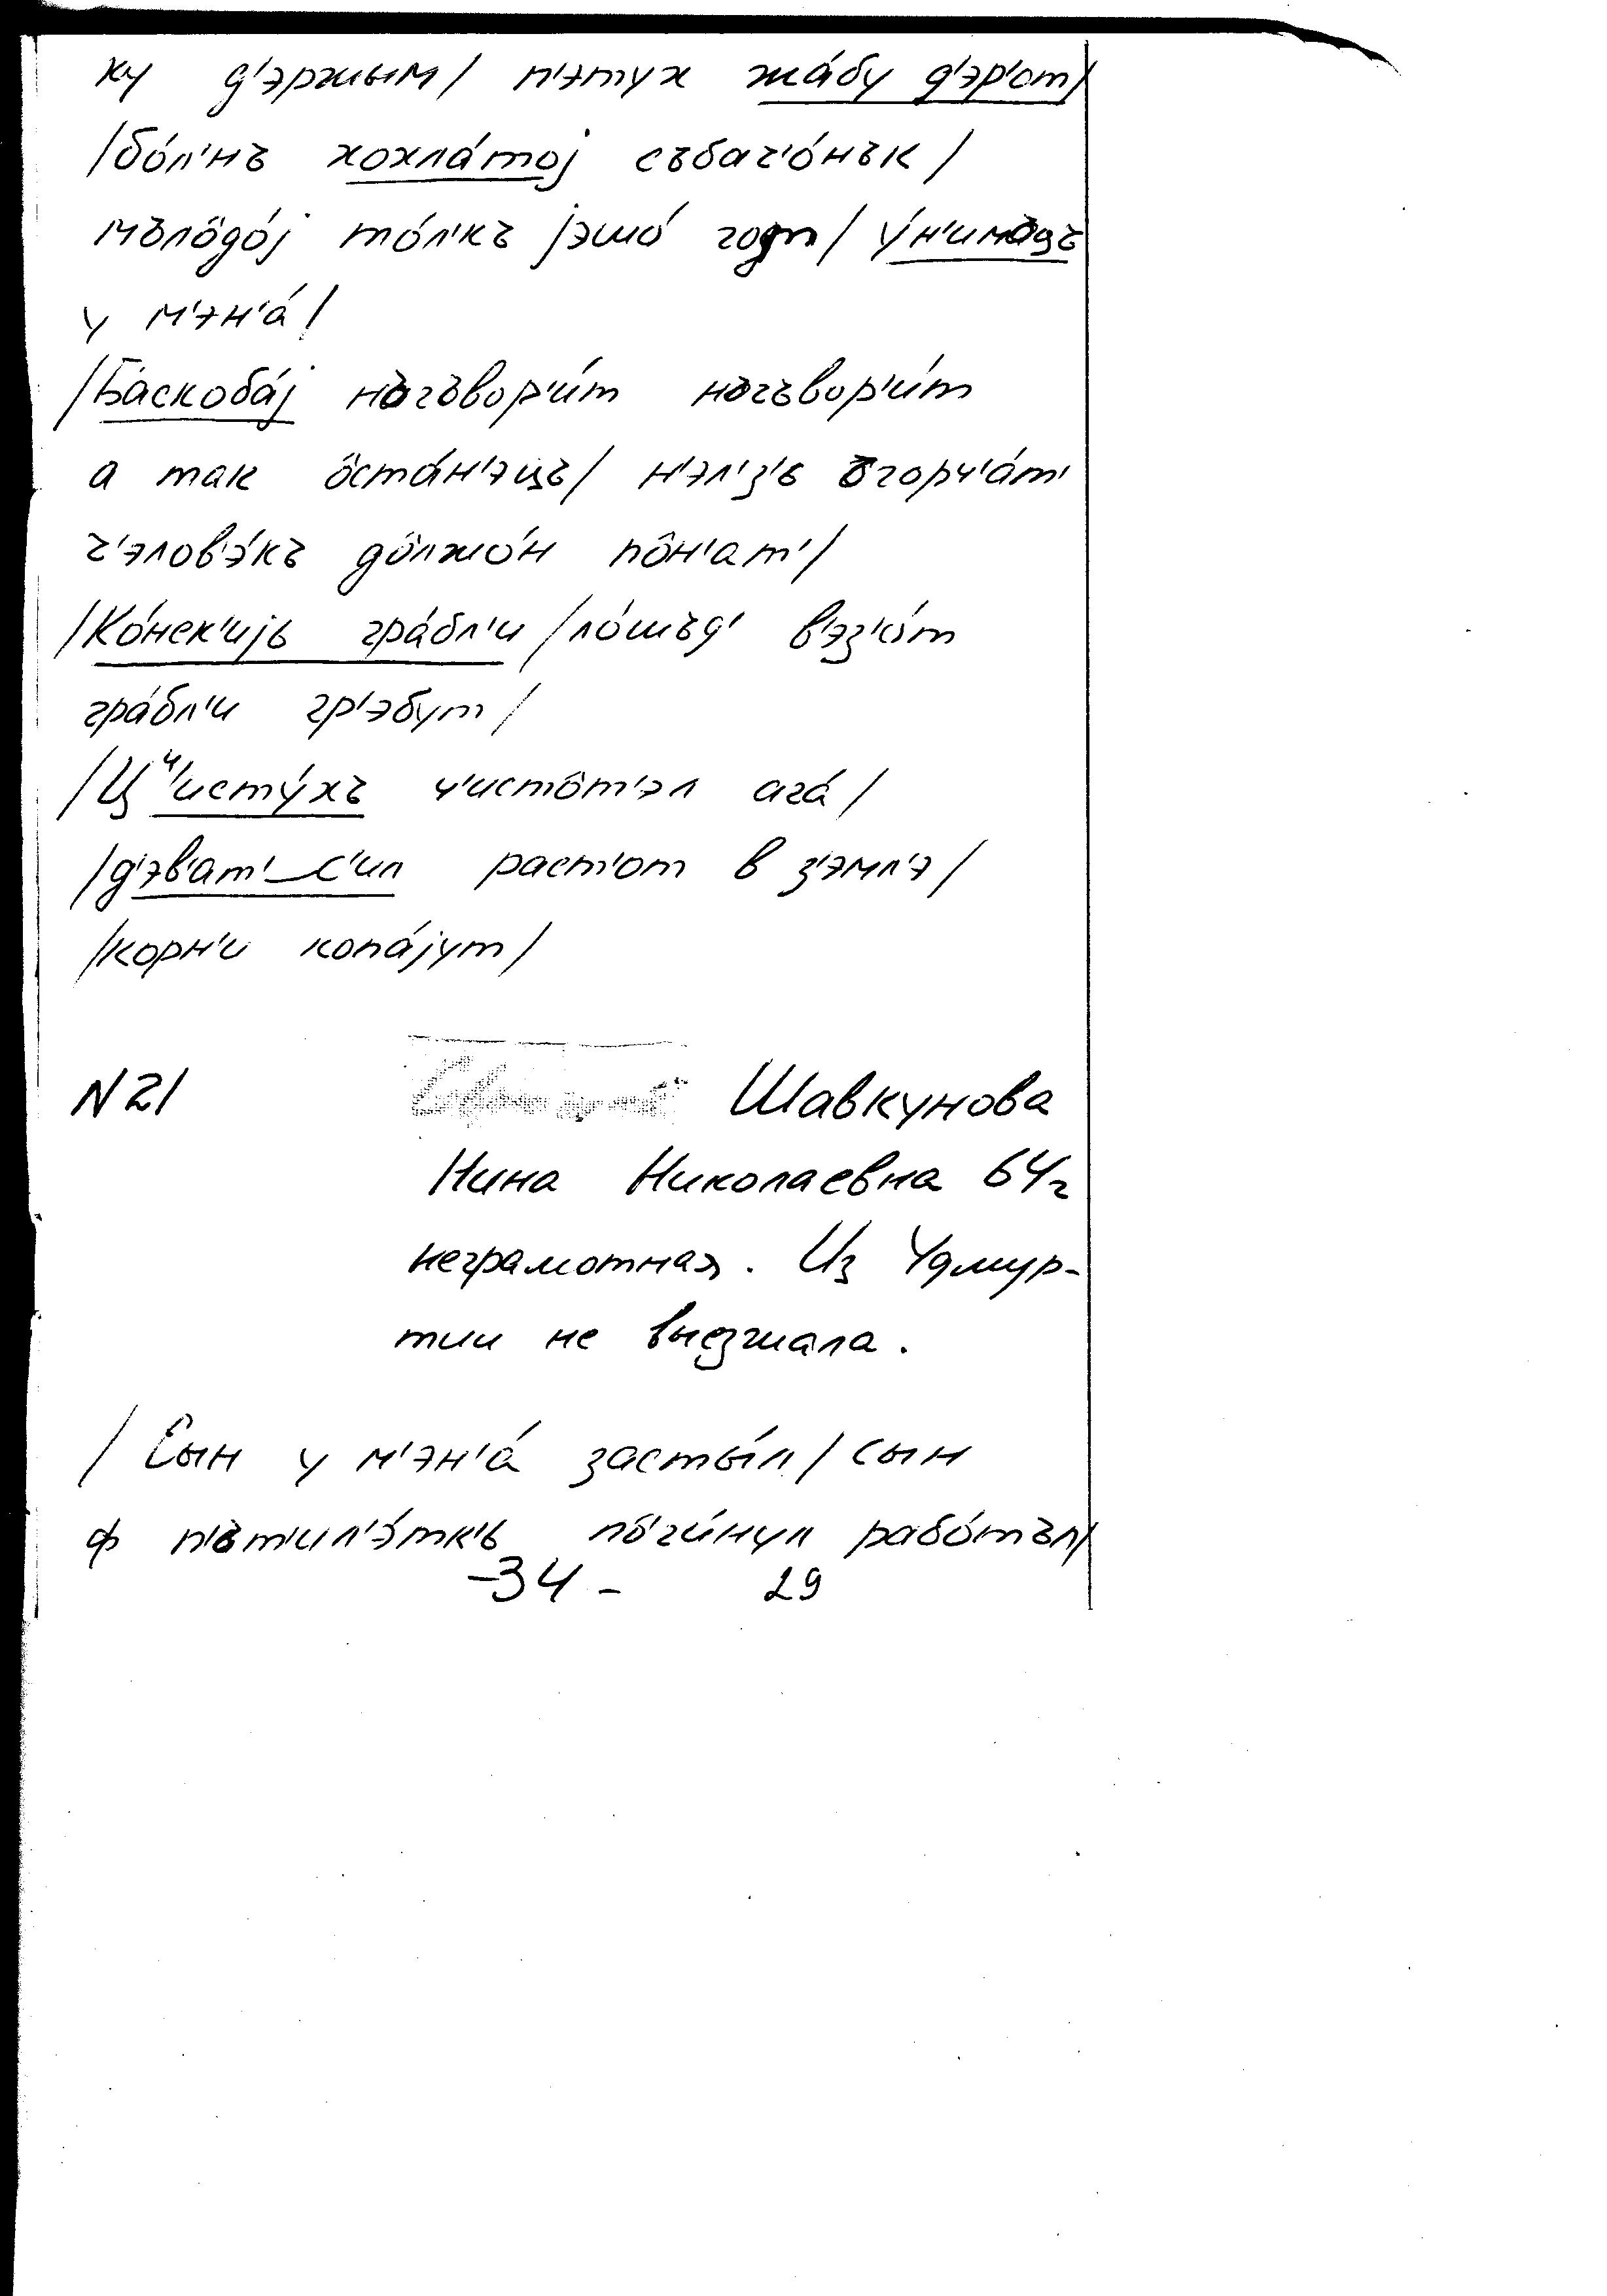 ку д'эржым / п'этух жа́бу д'эр'от /
/ бо́л'нъ хохла́тој събач'о́нък /
мъло̂до́ј то́л'къ јэшо́ годт / у́н'имъдъ
у м'эн'а́ /
/ Баскоба́ј нъгъвор'и́т нъгъвор'и́т
а так о̂ста́н'эцъ / н'эл'з'ь ъгорч'а́т'
ч'элов'э́къ до̂лжо́н по̂н'ат' /
/ Ко́нск'ијь гра́бл'и / ло́шъд' в'эз'о́т
гра́бл'и гр'эбут /
/ Ц ч'исту́хъ ч'исто̂т'эл ага́ /
/ д'эв'ат' с'ил раст'от в з'эмл'э /
/ корн'и копа́јут /
N 21 Шавкунова
Нина Николаевна 64 г
неграмотная. Из Удмур-
тии не выезжала.
/ Сын у м'эн'а́ засты́л / сын
ф п'ьт'ил'э́тк'ь по̂ги́нул рабо́тъл /
-34- 29